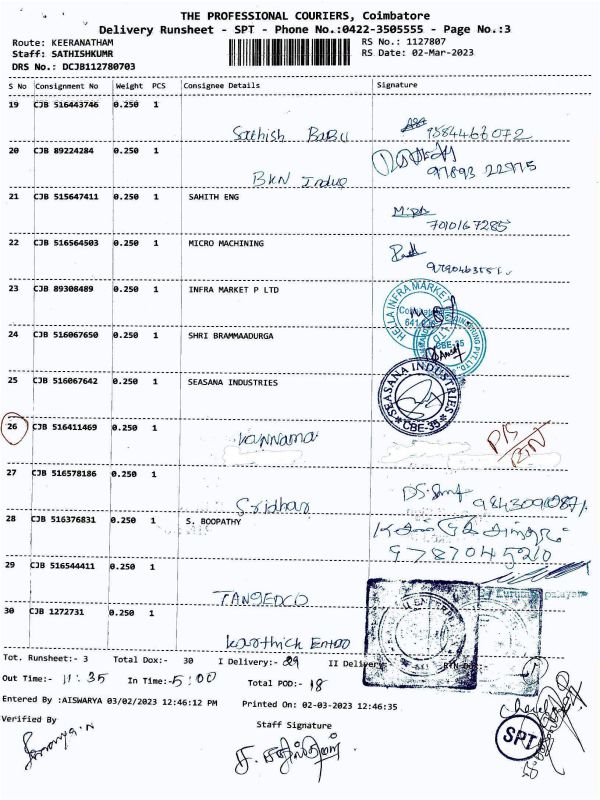 THE PROFESSIONAL COURIERS, Coimbatore
Delivery Runsheet - SPT - Phone No.:0422-3505555 - Page No.:3
Route: KEERANATHAM
RS No.: 1127807
Staff: SATHISHKUMR
RS Date: 02-Mar-2023
DRS No.: DCJB112780703
S No Consignment No Weight PCS Consignee Details Signature
19 CJB 516443746 0.250 1
Sathish Babu 9584466072
20 CJB 89224284 0.250 1
BKN Indus 97893 22975
21 CJB 515647411 0.250 1 SAHITH ENG
7010167285
22 CJB 516564503 0.250 1 MICRO MACHINING
23 CJB 89308489 0.250 1 INFRA MARKET P LTD
HELLA INFRA MARKET
24 CJB 516067650 0.250 1 SHRI BRAMMAADURGA
CBE-35
25 CJB 516067642 0.250 1 SEASANA INDUSTRIES
SEASANA INDUSTRIES
CBE-35
26 CJB 516411469 0.250 1
Kannama
27 CJB 516578186 0.250 1
Sridhar 9843090871
28 CJB 516376831 0.250 1 S. BOOPATHY
9787045210
29 CJB 516544411 0.250 1
TANGEDCO
30 CJB 1272731 0.250 1
Karthick Enter
Tot. Runsheet:- 3 Total Dox:- 30 I Delivery:- 29 II Delivery
Out Time:- 11:35 In Time:- 5:00 Total POD:- 18
Entered By :AISWARYA 03/02/2023 12:46:12 PM Printed On: 02-03-2023 12:46:35
Verified By Staff Signature
SPT